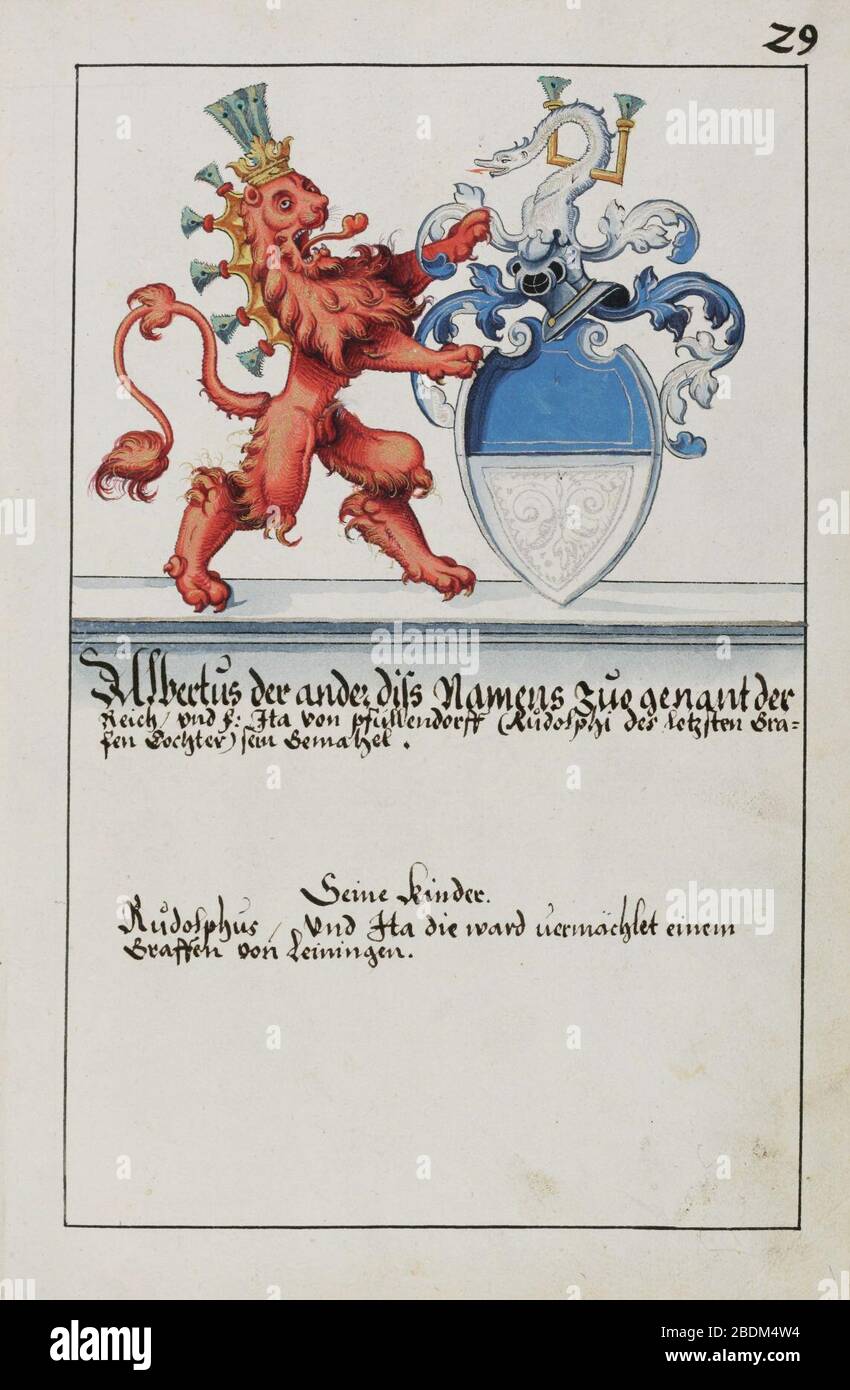 29
Albertus der ander diss Namens zue genant der
Reich / vnd f: Ita von pfullendorff (Rudolphi des letzsten Gra=
fen Tochter) sein Gemahel.
Seine Kinder.
Rudolphus / Vnd Ita die ward vermächlet einem
Graffen von Leiningen.
alamy
Image ID: 2BDM4W4
www.alamy.com